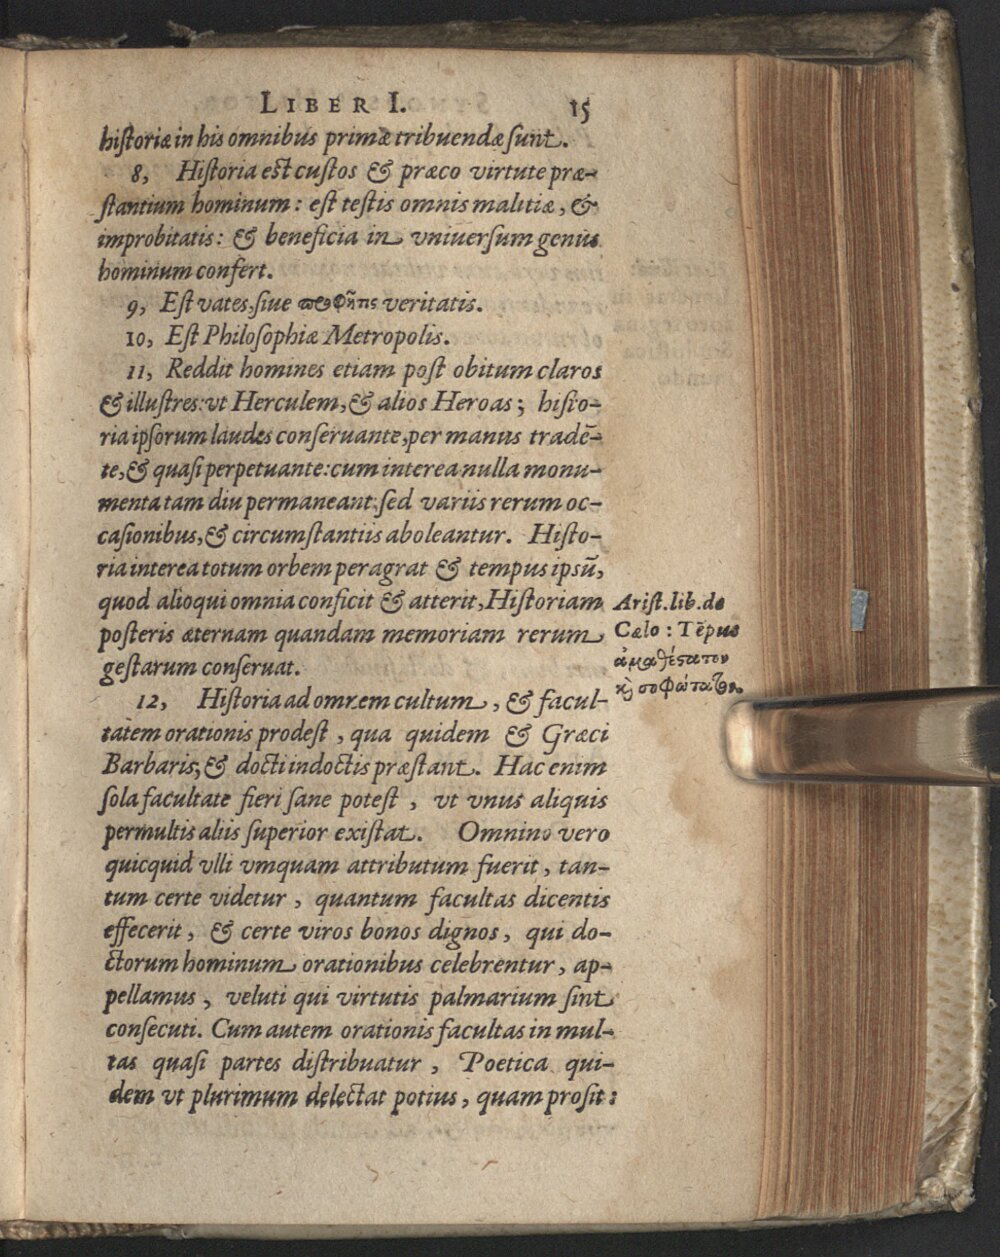 LIBER I. 15
historiæ in his omnibus primæ tribuendæ sunt.
8, Historia est custos & præco virtute præ-
stantium hominum : est testis omnis malitiæ, &
improbitatis : & beneficia in vniuersum genus
hominum confert.
9, Est vates, siue προφήτης veritatis.
10, Est Philosophiæ Metropolis.
11, Reddit homines etiam post obitum claros
& illustres: vt Herculem, & alios Heroas; histo-
ria ipsorum laudes conseruante, per manus tradē-
te, & quasi perpetuante: cum interea nulla monu-
menta tam diu permaneant: sed variis rerum oc-
casionibus, & circumstantiis aboleantur. Histo-
ria interea totum orbem peragrat & tempus ipsū,
quod alioqui omnia conficit & atterit, Historiam
posteris æternam quandam memoriam rerum
gestarum conseruat.
Arist. lib. de
Cælo : Tēpus
ἀμαθέστατον
κỳ σοφώτατον.
12, Historia ad omnem cultum, & facul-
tatem orationis prodest, qua quidem & Græci
Barbaris, & docti indoctis præstant. Hac enim
sola facultate fieri sane potest, vt vnus aliquis
permultis aliis superior existat. Omnino vero
quicquid vlli vmquam attributum fuerit, tan-
tum certe videtur, quantum facultas dicentis
effecerit, & certe viros bonos dignos, qui do-
ctorum hominum orationibus celebrentur, ap-
pellamus, veluti qui virtutis palmarium sint
consecuti. Cum autem orationis facultas in mul-
tas quasi partes distribuatur, Poetica qui-
dem vt plurimum delectat potius, quam prosit: